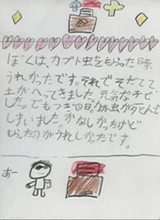 ぼくは、カブト虫をもらった時、
うれしかったです。それでそだてて
土がへってきました。元気な子で
した。でもつぎの日カブト虫が死んで
しまいました。かなしかったけど
もらったのがうれしかったです。
おー